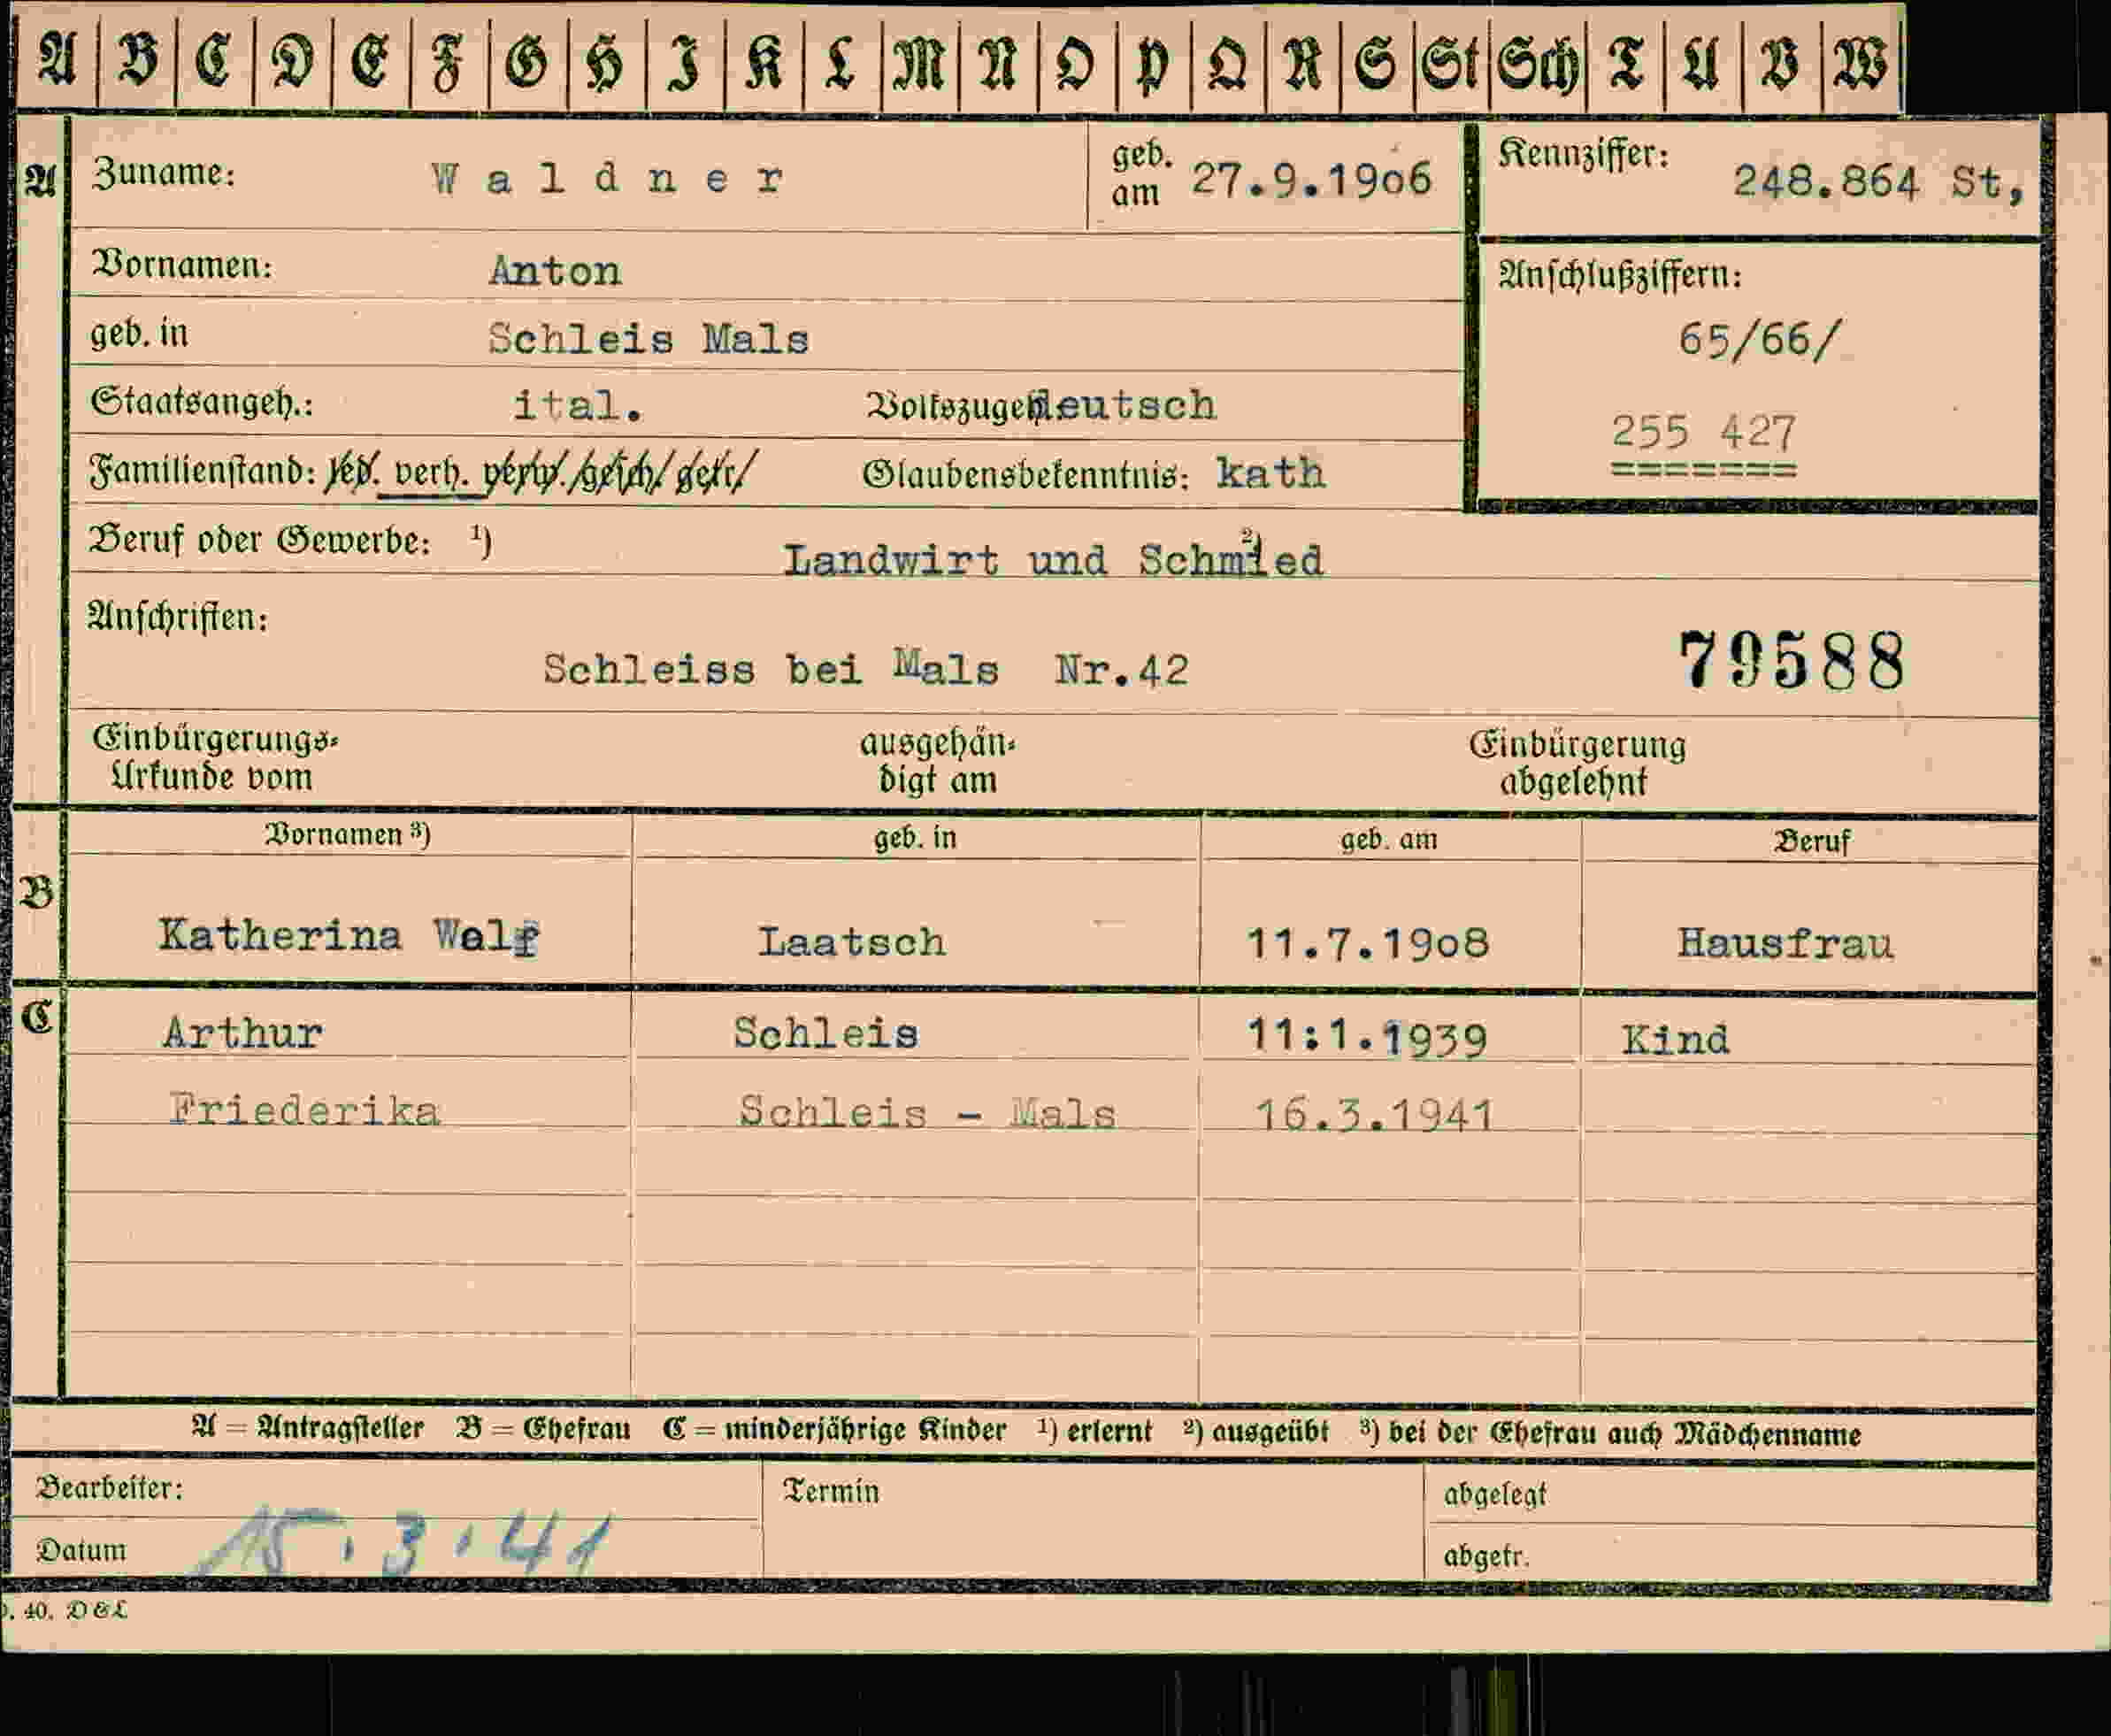 A B C D E F G H I K L M N O P Q R S St Sch T U V W
A Zuname: Waldner geb. am 27.9.19o6 Kennziffer: 248.864 St,
Vornamen: Anton Anschlußziffern:
geb. in Schleis Mals 65/66/
Staatsangeh.: ital. Volkszugeh deutsch 255 427
Familienstand: led. verh. verw. gesch. getr. Glaubensbekenntnis: kath =======
Beruf oder Gewerbe: ¹) Landwirt und Schmied ²)
Anschriften:
Schleiss bei Mals Nr.42 79588
Einbürgerungs- ausgehän- Einbürgerung
Urkunde vom digt am abgelehnt
Vornamen ³) geb. in geb. am Beruf
B
Katherina Laatsch 11.7.19o8 Hausfrau
C
Arthur Schleis 11:1.1939 Kind
Friederika Schleis - Mals 16.3.1941
A = Antragsteller B = Ehefrau C = minderjährige Kinder ¹) erlernt ²) ausgeübt ³) bei der Ehefrau auch Mädchenname
Bearbeiter: Termin abgelegt
Datum 15.3.41 abgetr.
. 40. D&L